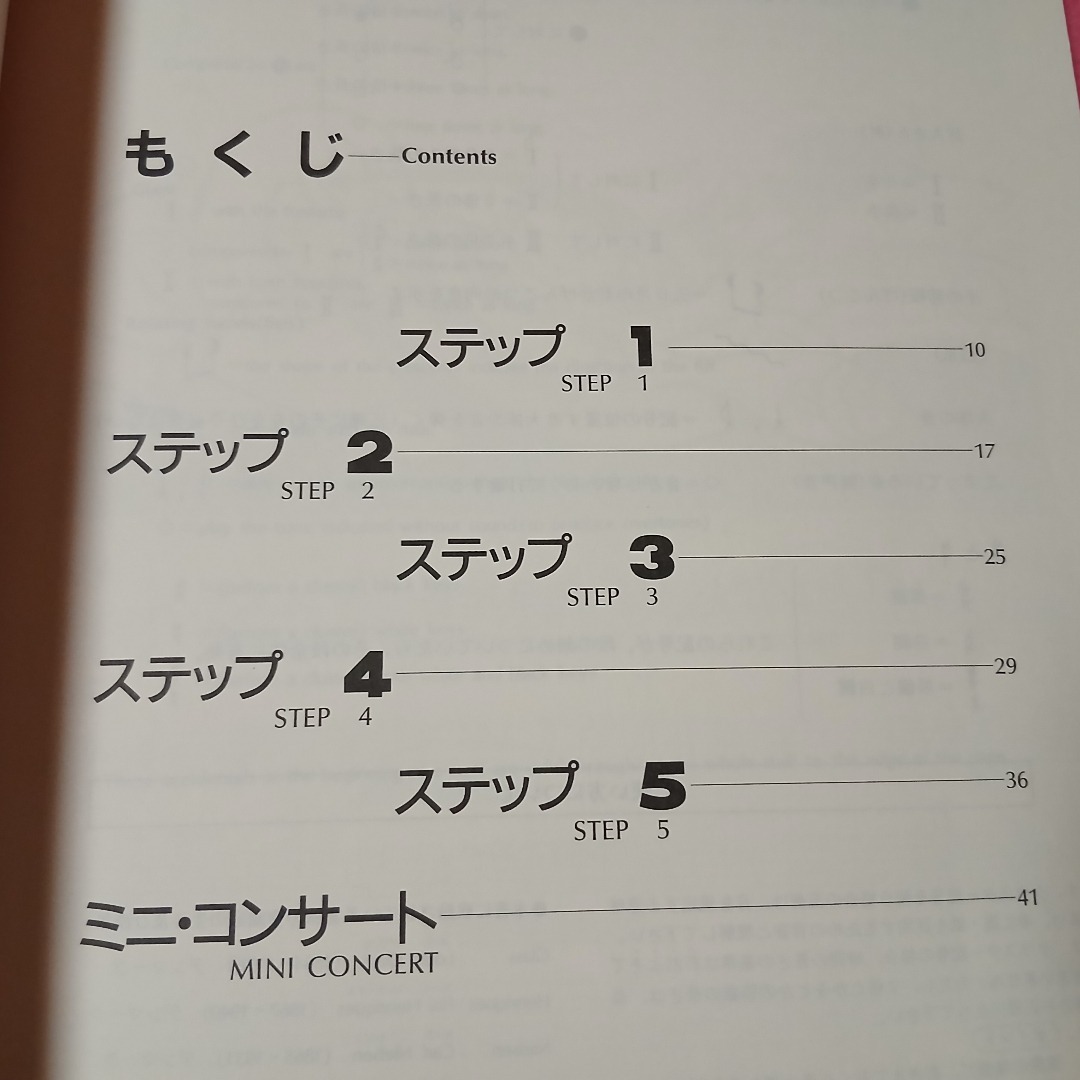 もくじ Contents
ステップ 1 10
STEP 1
ステップ 2 17
STEP 2
ステップ 3 25
STEP 3
ステップ 4 29
STEP 4
ステップ 5 36
STEP 5
ミニ・コンサート 41
MINI CONCERT